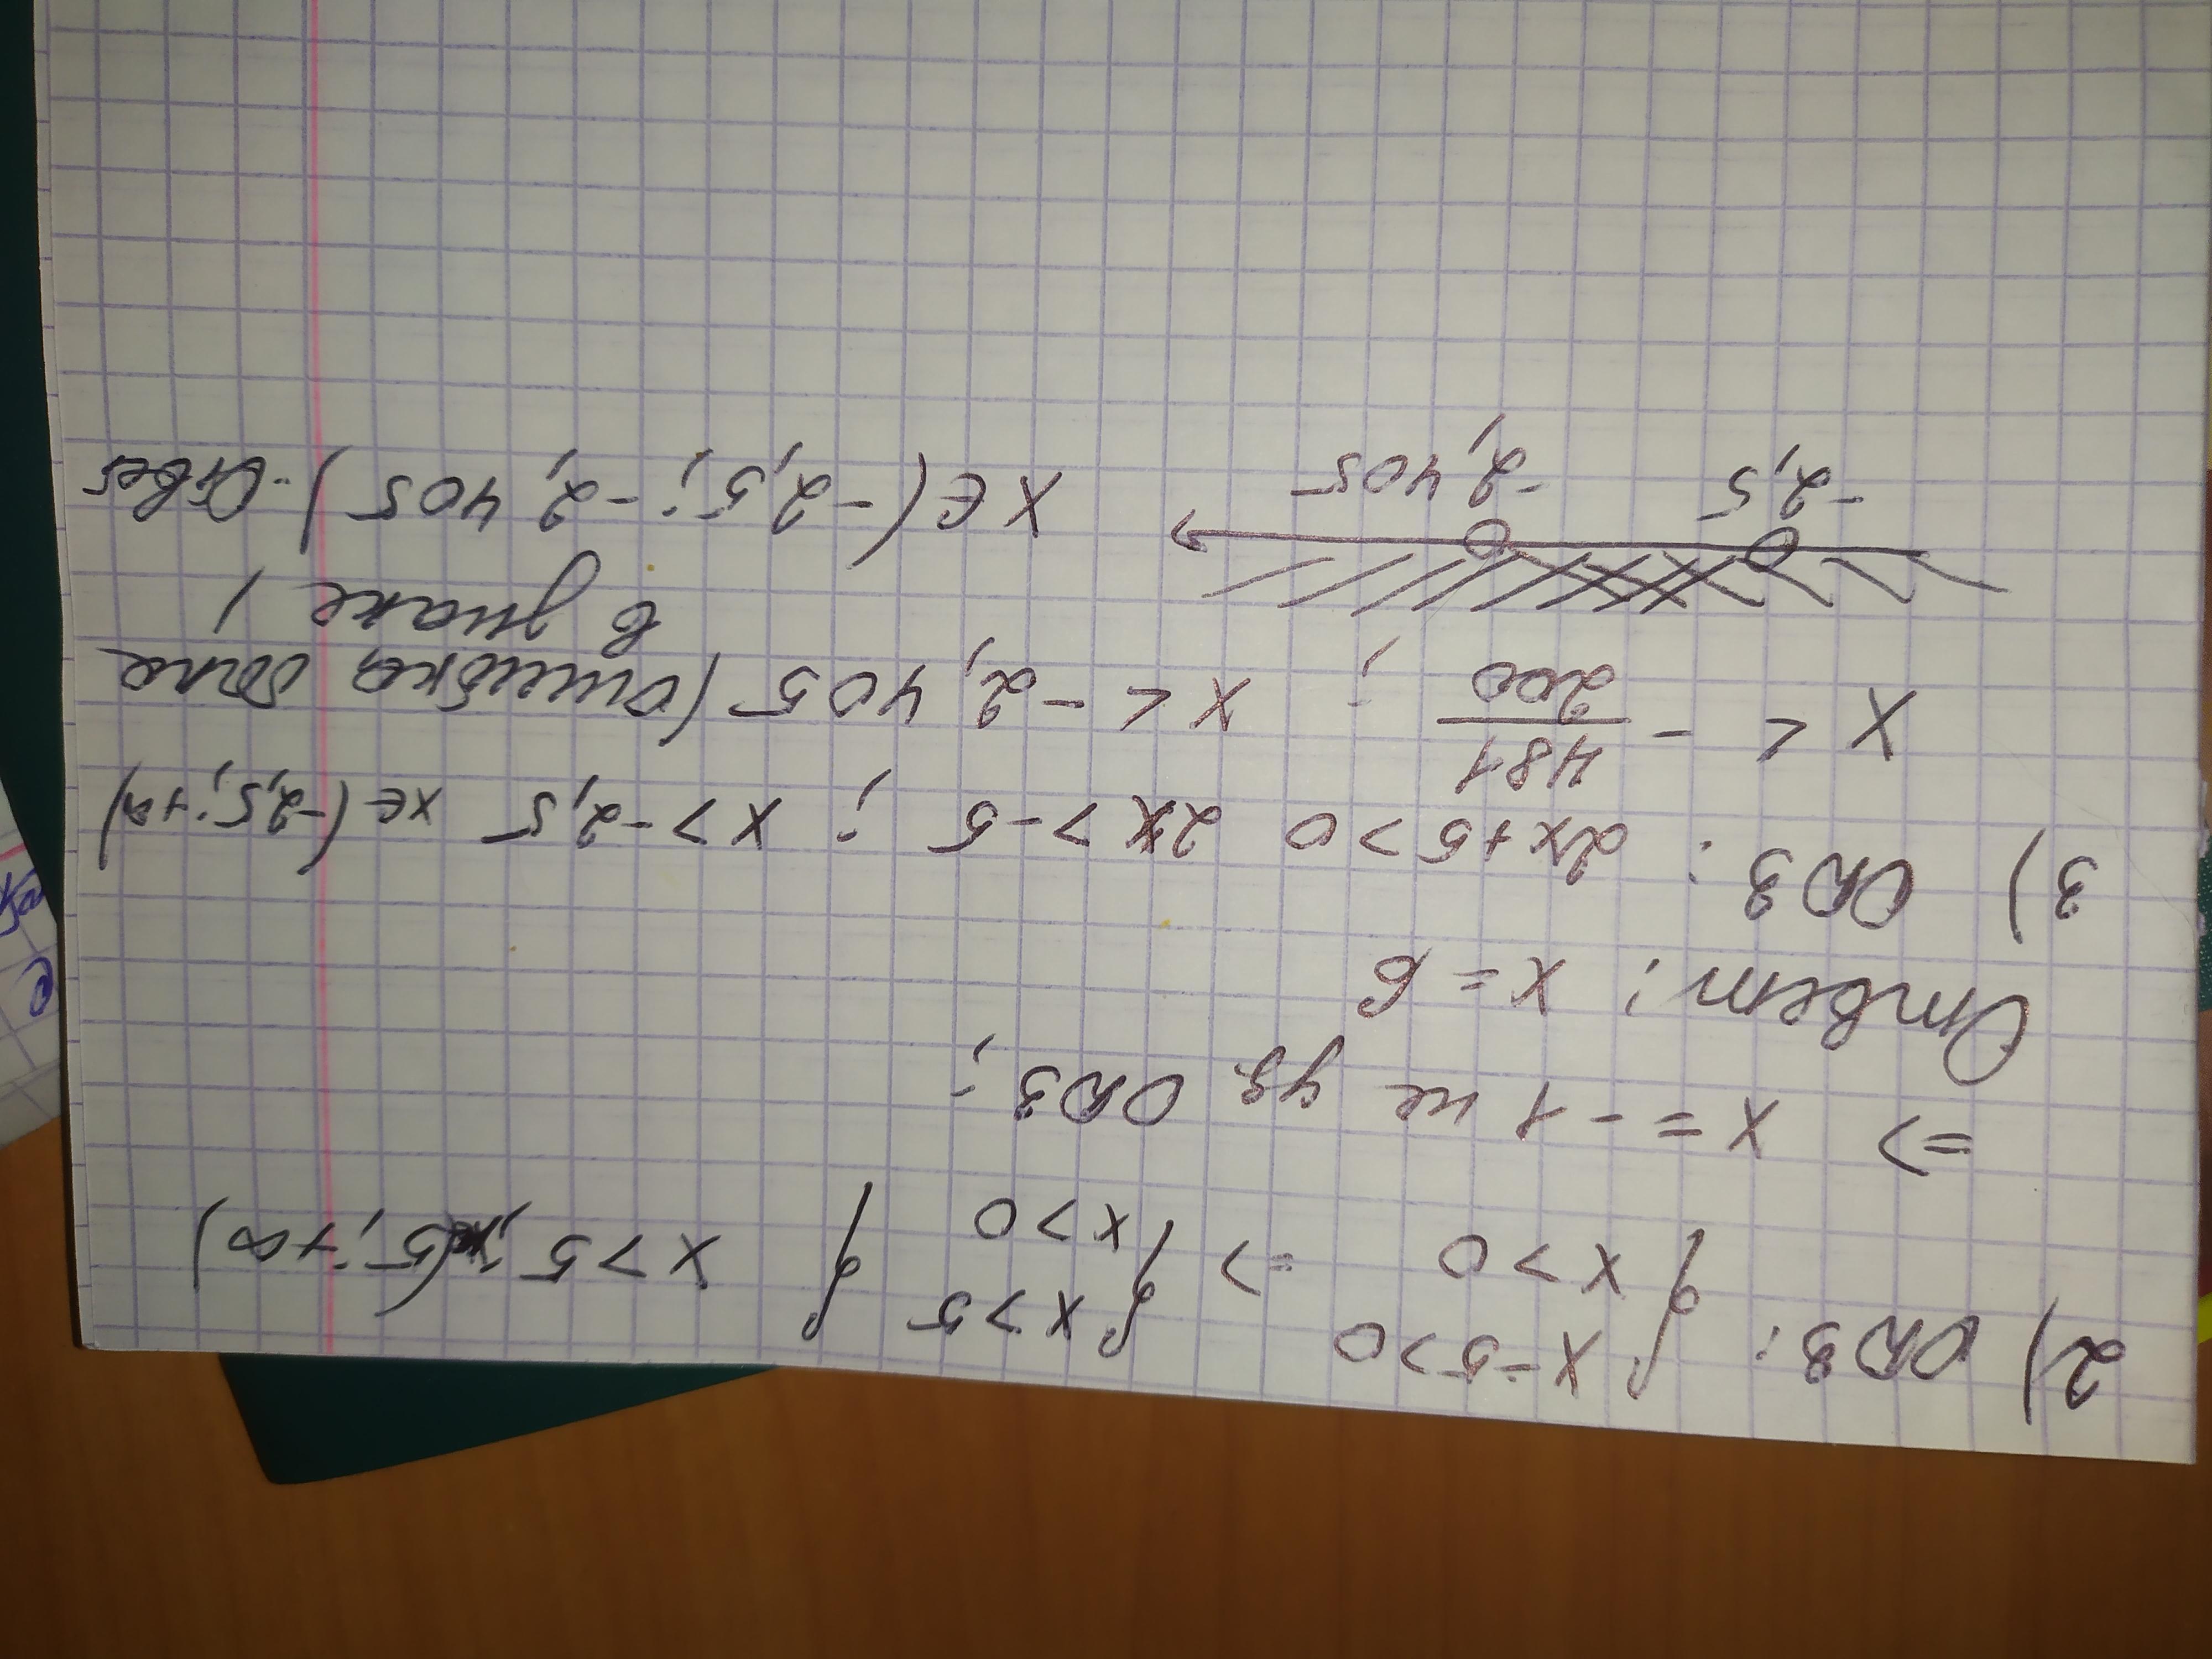 2) ОДЗ: { x-5>0 x>0 => { x>5 x>0 { x>5; (5; +∞)
=> x = -1 не уд ОДЗ;
Ответ: x = 6
3) ОДЗ: 2x+5>0 2x>-5; x>-2,5 x∈(-2,5; +∞)
x < - 481/200; x < -2,405 (ошибка была
в знаке)
-2,5 -2,405 x∈(-2,5; -2,405) - Ответ